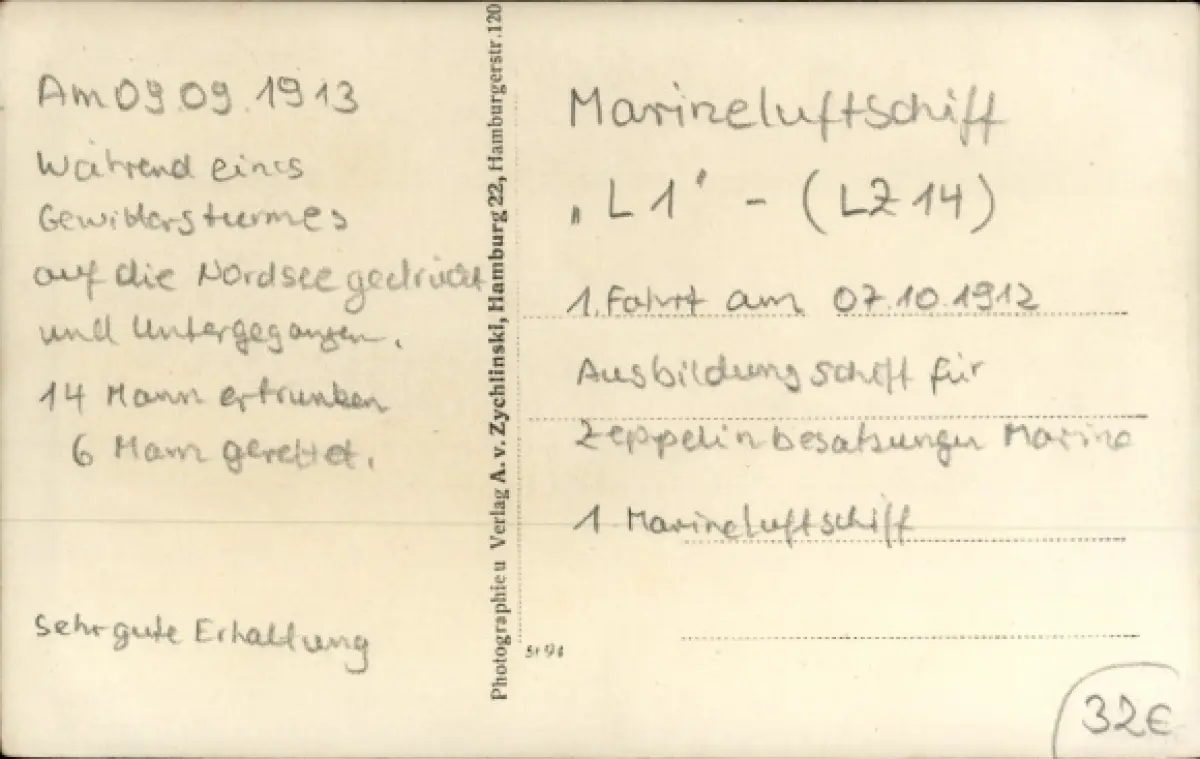 Am 09 09. 1913
Während eines
Gewittersturmes
auf die Nordsee gedrückt
und Untergegangen.
14 Mann ertrunken
6 Mann gerettet.
sehr gute Erhaltung
Photographie u Verlag A. v. Zychlinski, Hamburg 22, Hamburgerstr. 120
Marineluftschiff
„L 1" - (LZ 14)
1. Fahrt am 07.10.1912
Ausbildungschiff für
Zeppelinbesatzungen Marine
1 Marineluftschiff
32€